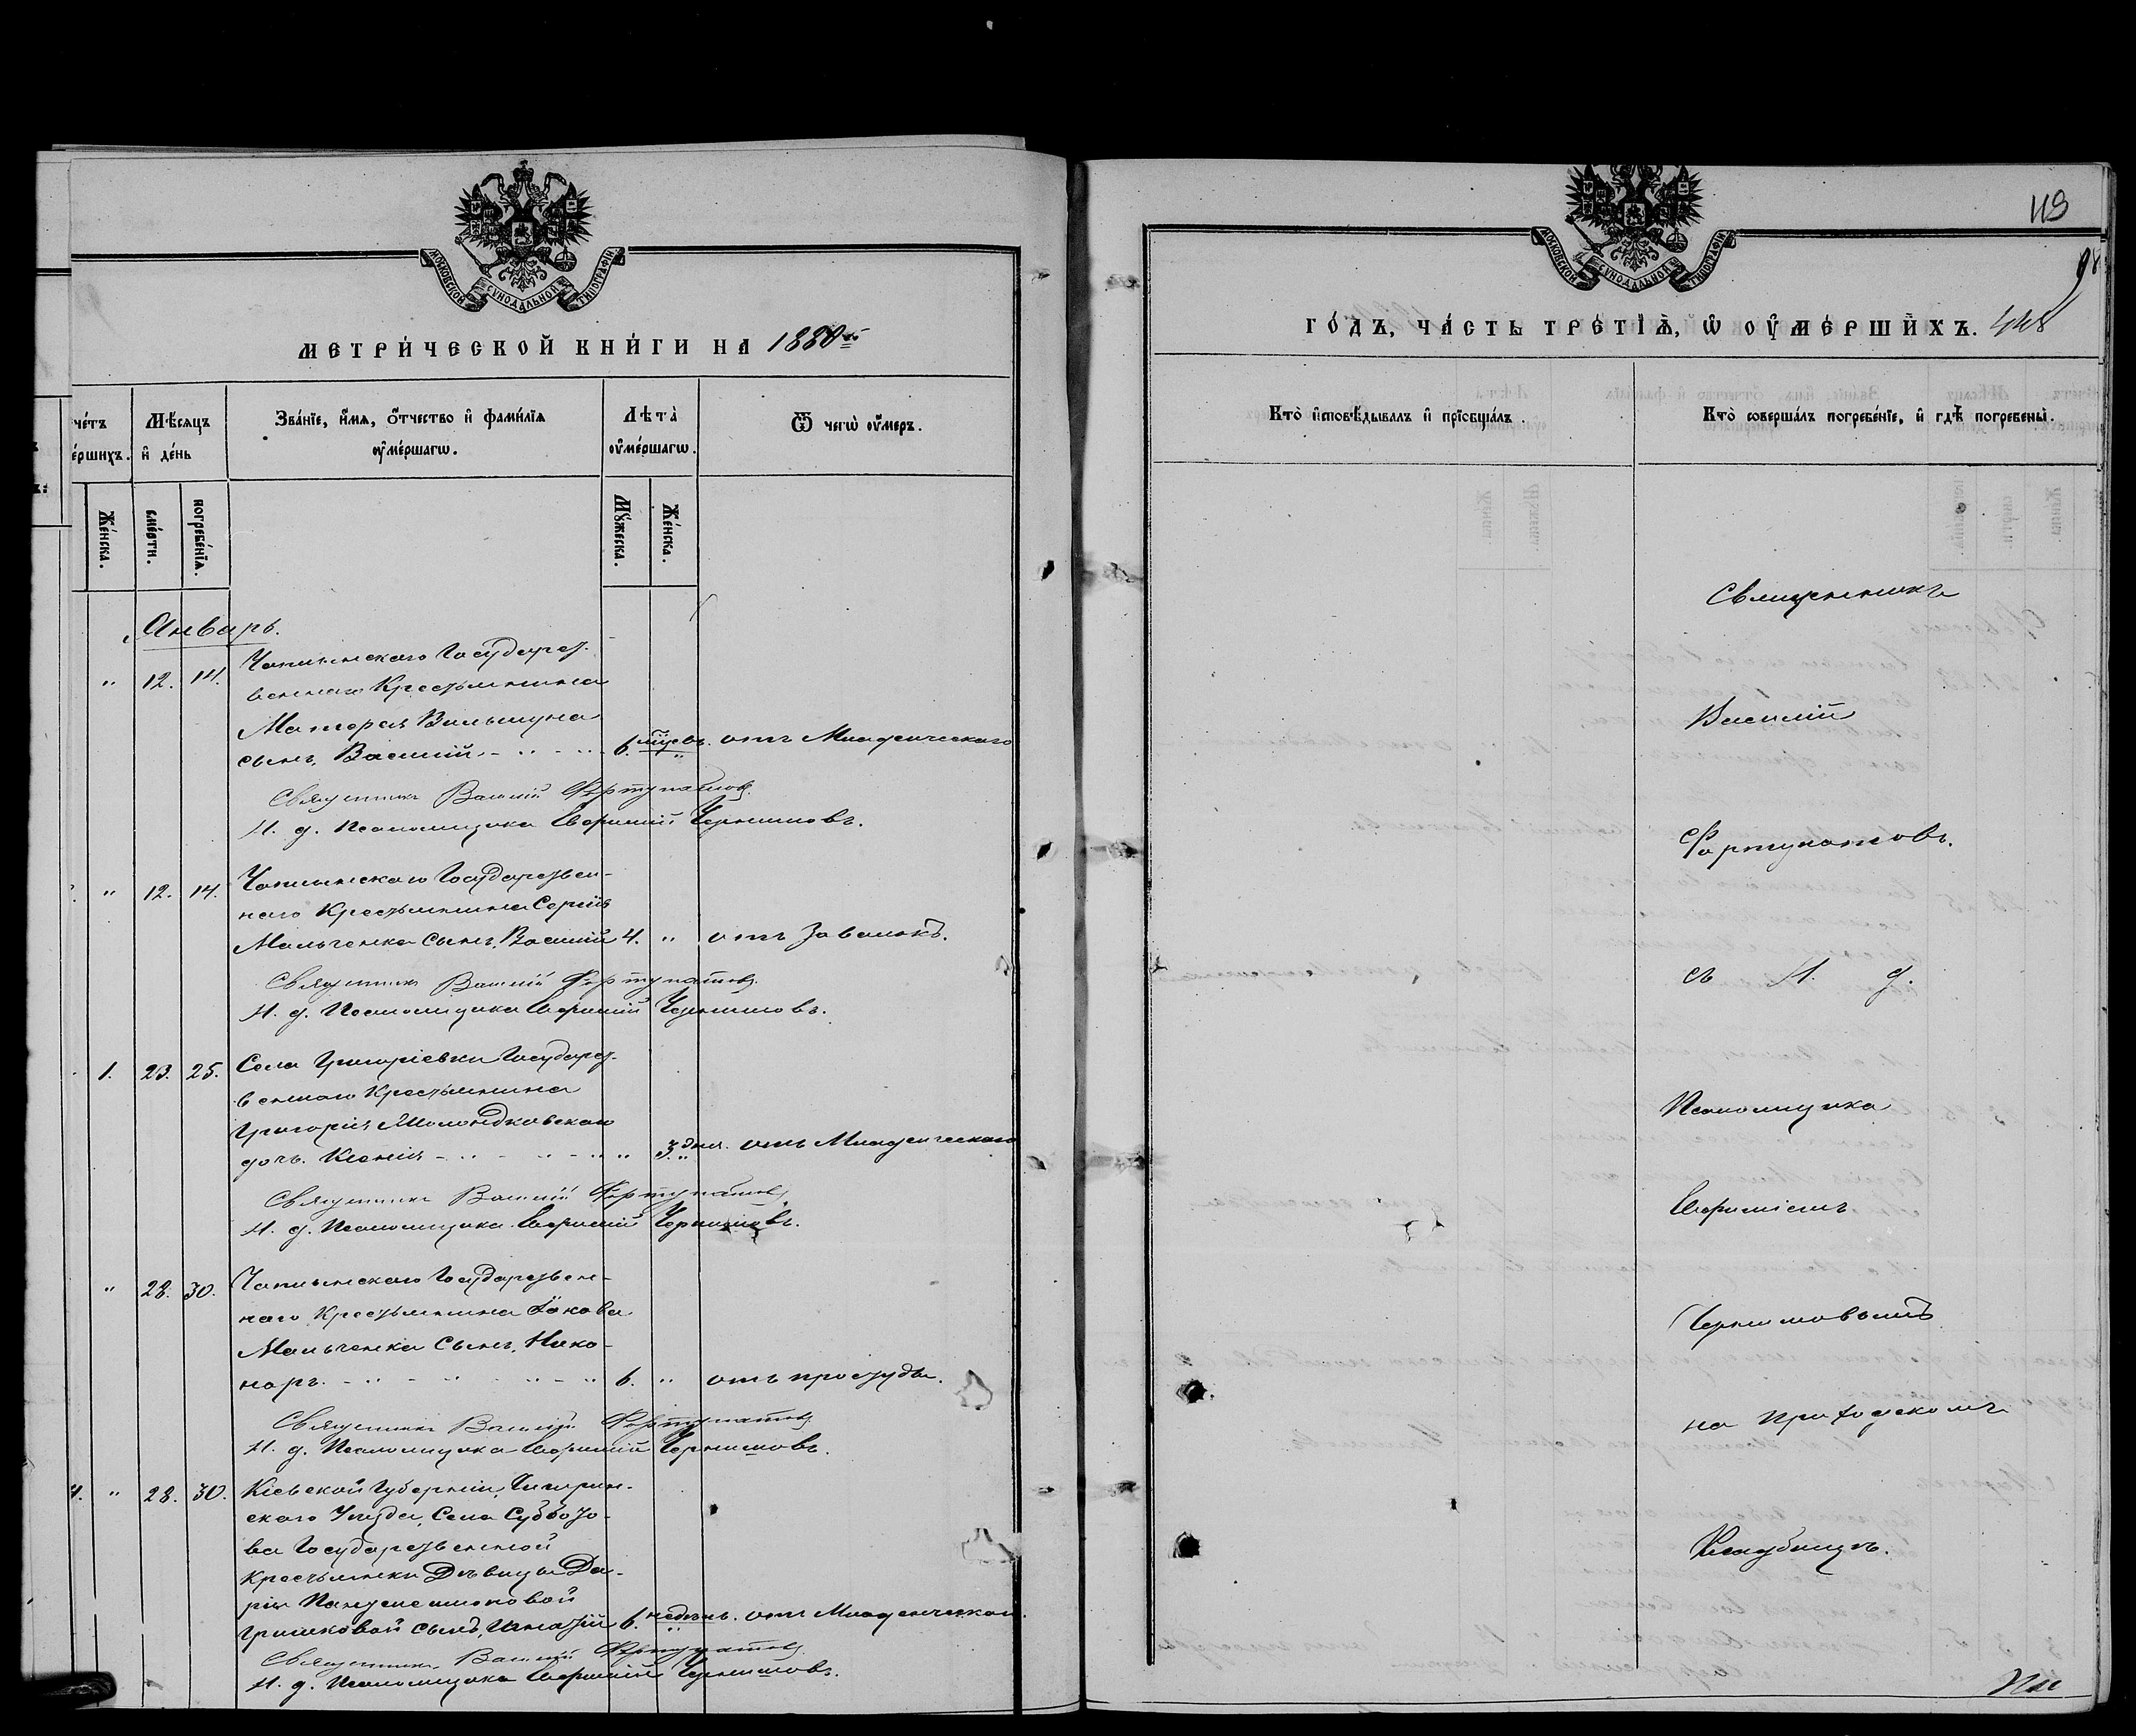 МОСКОВСКОЙ СѴНОДАЛЬНОЙ ТИПОГРАФІИ
МЕТРИ́ЧЕСКОЙ КНИ́ГИ НА 1880й
че́тъ
е́ршихъ.
Мѣ́сяцъ
и҆ де́нь
Зва́нїе, и҆́мя, ѻ҆́тчество и҆ фами́лїя
ᲂу҆ме́ршагѡ.
Лѣта̀
ᲂу҆ме́ршагѡ.
Ѿ чегѡ̀ ᲂу҆́меръ.
Же́нска.
сме́рти.
погребе́нїѧ.
Мꙋ́жеска.
Же́нска.
Январь.
" 12. 14. Чаплынскаго Государст-
веннаго Крестьянина
сынъ, Василій - " - " 6. мѣсяц. отъ Младенческаго
Священникъ Василій Фортунатовъ
И. д. Псаломщика Евфимій Чернишовъ.
" 12. 14. Чаплынскаго Государствен-
наго Крестьянина Сергія
Мальченка сынъ, Василій 4. " отъ Завалокъ.
Священникъ Василій Фортунатовъ
И. д. Псаломщика Евфимій Чернишовъ.
1. 23. 25. Села Григоріевки Государст-
веннаго Крестьянина
Григорія
дочь Ксенія - " - " - " " 3. дня. отъ Младенческаго
Священникъ Василій Фортунатовъ
И. д. Псаломщика Евфимій Чернишовъ.
" 28. 30. Чаплынскаго Государствен-
наго Крестьянина Іакова
Мальченка сынъ, Нико-
норъ. - " - " - " - " 6. " отъ простуды.
Священникъ Василій Фортунатовъ
И. д. Псаломщика Евфимій Чернишовъ.
4. " 28. 30. Кіевской Губерніи, Чигирин-
скаго Уѣзда, Села Суббото-
ва Государственной
Крестьянки Дѣвицы Да-
ріи
Гришковой сынъ, Игнатій 6. недѣль. отъ Младенческаго.
Священникъ Василій Фортунатовъ
И. д. Псаломщика Евфимій Чернишовъ.
МОСКОВСКОЙ СѴНОДАЛЬНОЙ ТИПОГРАФІИ
ГО́ДЪ, ЧА́СТЬ ТРЕ́ТЇѦ, Ѡ҆ ОУ҆МЕ́РШИХЪ. 448
Кто̀ и҆сповѣ́дывалъ и҆ прїобща́лъ.
Кто̀ соверша́лъ погребе́нїе, и҆ гдѣ̀ погребены̀.
Священникъ
Василій
Фортунатовъ.
съ И. д.
Псаломщика
Евфиміемъ
Чернишовымъ
на приходскомъ
Кладбищѣ.